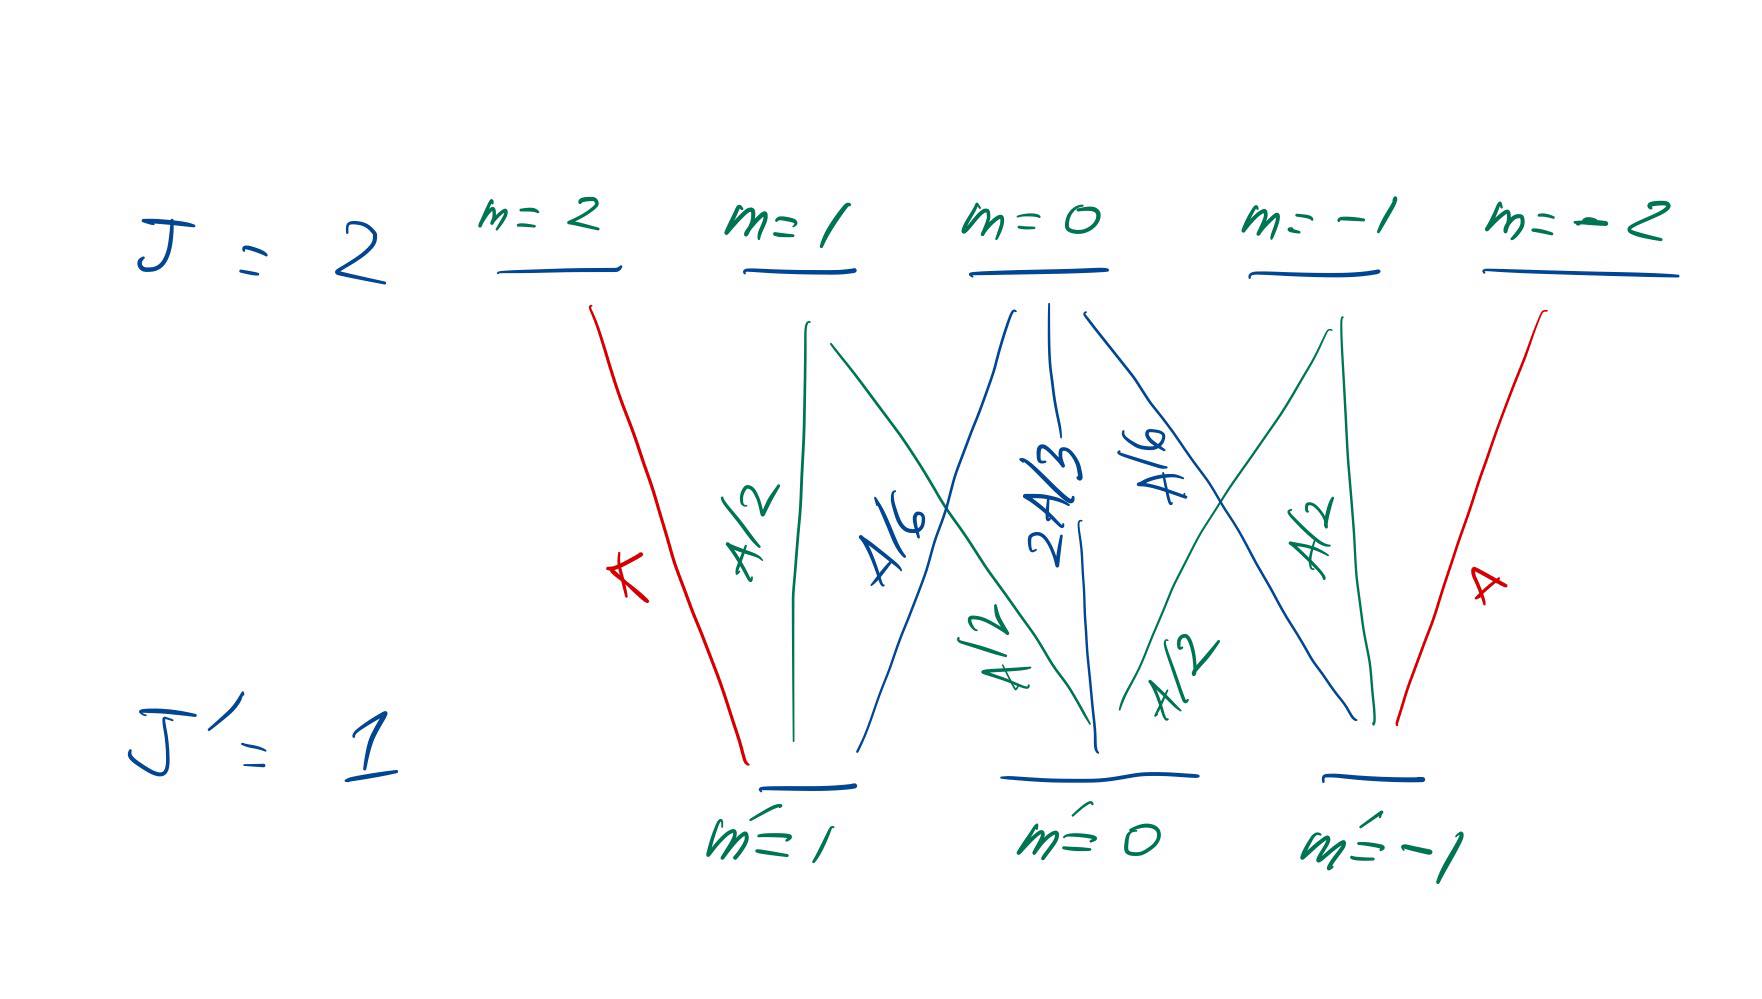 J = 2 m = 2 m = 1 m = 0 m = -1 m = -2
A A/2 A/6 A/2 2A/3 A/6 A/2 A/2 A
J' = 1
m' = 1 m' = 0 m' = -1